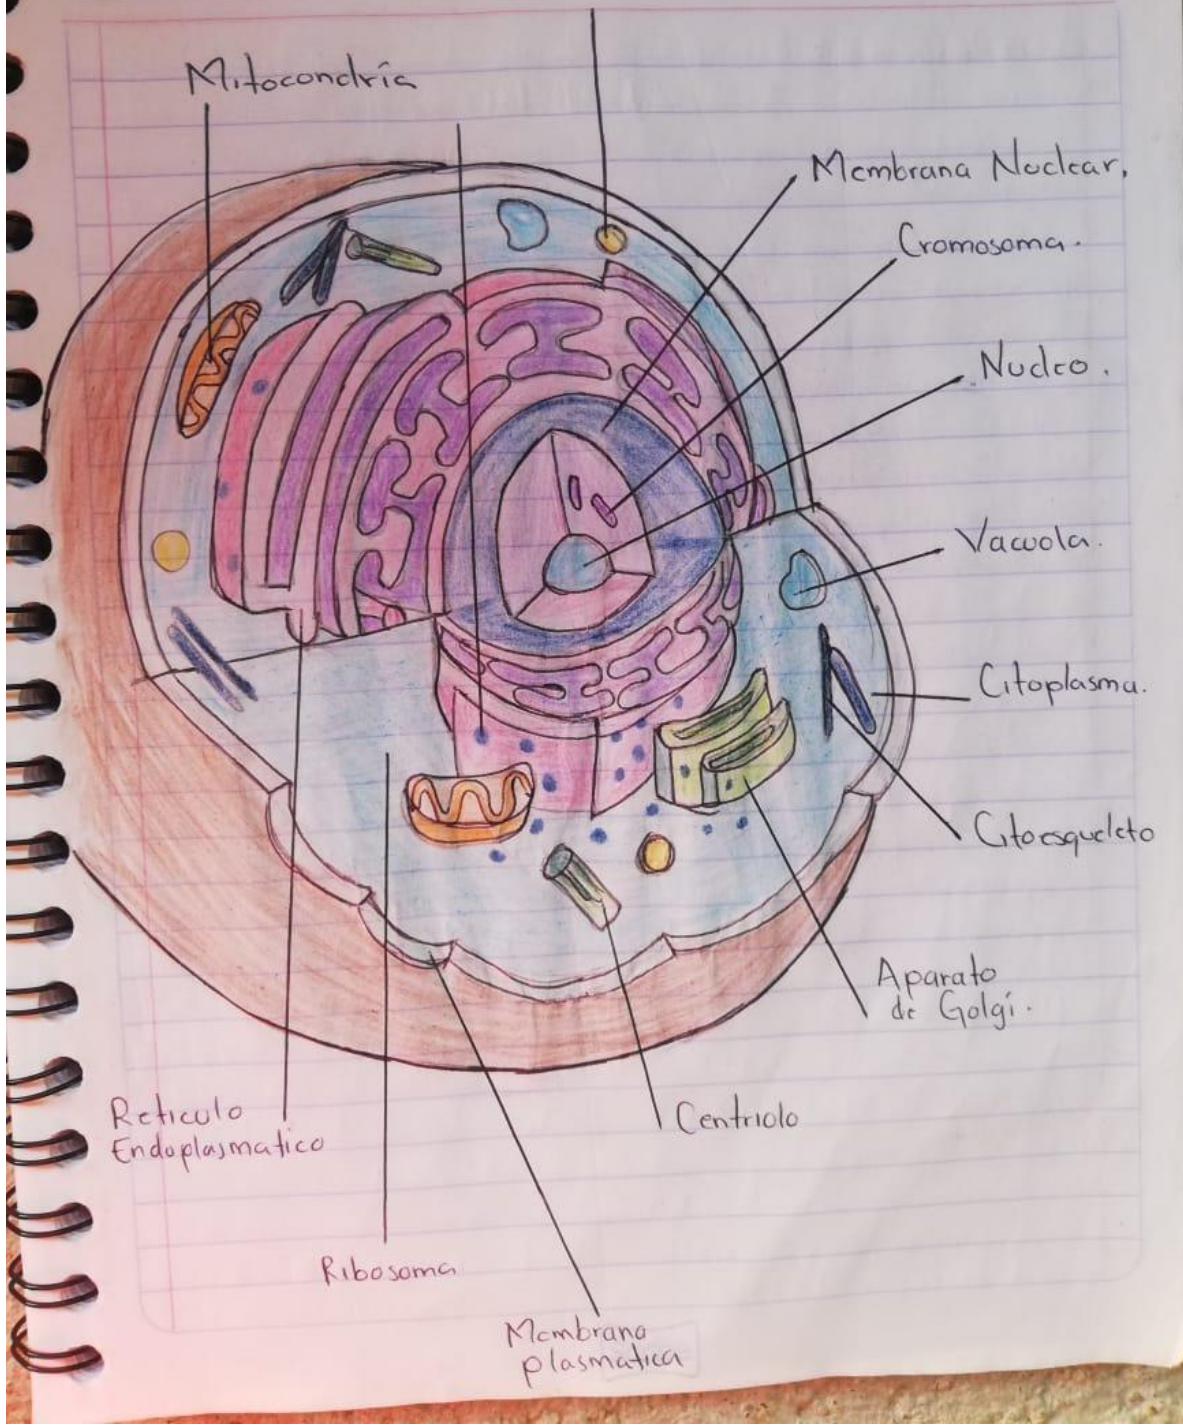 Mitocondría
Membrana Nuclear.
Cromosoma.
Nucleo.
Vacuola.
Citoplasma.
Citoesqueleto
Aparato
de Golgí.
Centriolo
Reticulo
Endoplasmatico
Ribosoma
Membrana
plasmatica